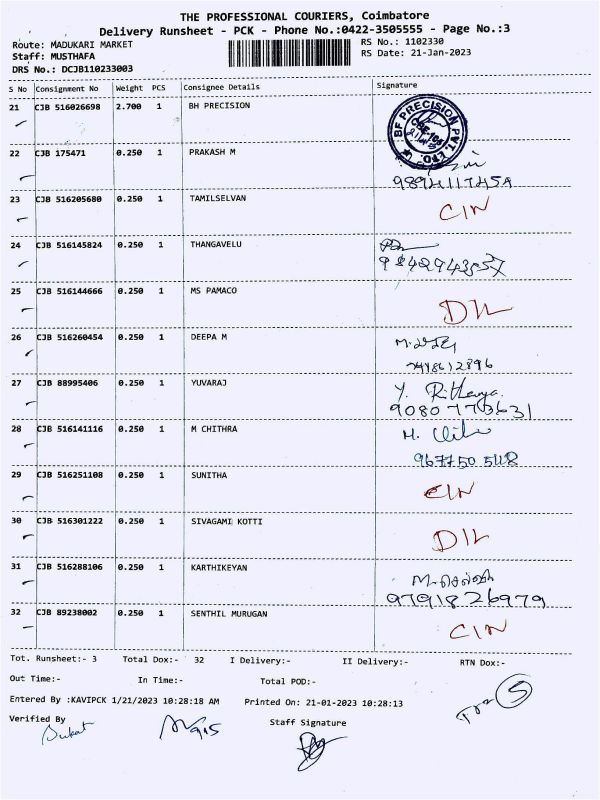 THE PROFESSIONAL COURIERS, Coimbatore
Delivery Runsheet - PCK - Phone No.:0422-3505555 - Page No.:3
Route: MADUKARI MARKET RS No.: 1102330
Staff: MUSTHAFA RS Date: 21-Jan-2023
DRS No.: DCJB110233003
S No Consignment No Weight PCS Consignee Details Signature
21 CJB 516026698 2.700 1 BH PRECISION
BF PRECISION PVT. LTD.
22 CJB 175471 0.250 1 PRAKASH M
9894117459
23 CJB 516205680 0.250 1 TAMILSELVAN
CIN
24 CJB 516145824 0.250 1 THANGAVELU
25 CJB 516144666 0.250 1 MS PAMACO
DIL
26 CJB 516260454 0.250 1 DEEPA M
7498612896
27 CJB 88995406 0.250 1 YUVARAJ
Y. Rithanya
9080773631
28 CJB 516141116 0.250 1 M CHITHRA
M.
29 CJB 516251108 0.250 1 SUNITHA
CIN
30 CJB 516301222 0.250 1 SIVAGAMI KOTTI
DIL
31 CJB 516288106 0.250 1 KARTHIKEYAN
9791826979
32 CJB 89238002 0.250 1 SENTHIL MURUGAN
CIN
Tot. Runsheet:- 3 Total Dox:- 32 I Delivery:- II Delivery:- RTN Dox:-
Out Time:- In Time:- Total POD:-
Entered By :KAVIPCK 1/21/2023 10:28:18 AM Printed On: 21-01-2023 10:28:13
5
Verified By Staff Signature